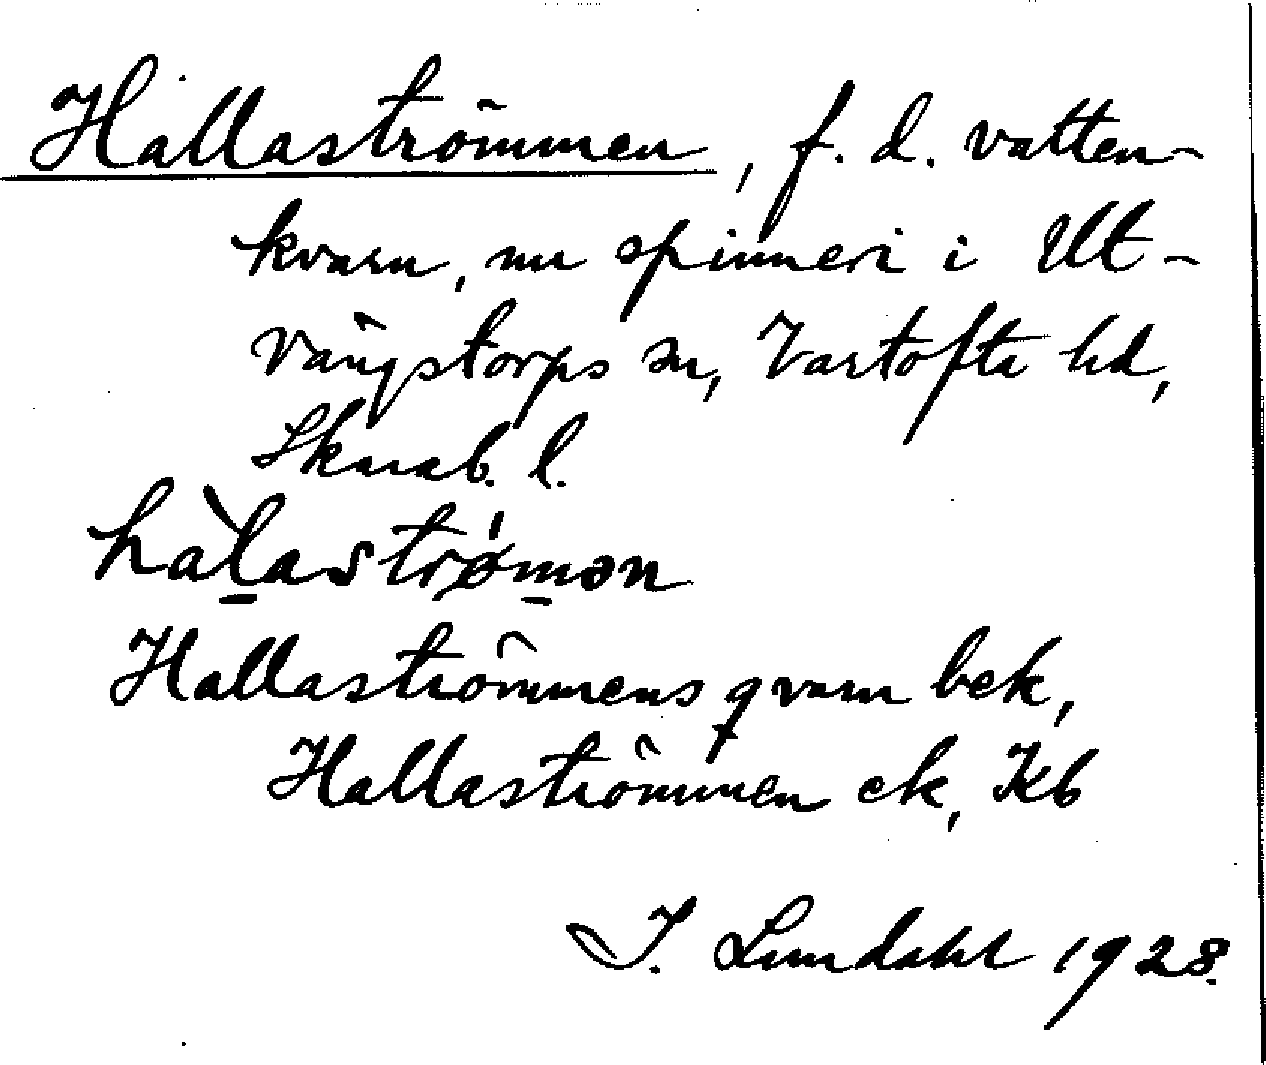 Hallaströmmen, f. d. vatten-
kvarn, nu spinneri i Ut-
vängstorps sn, Vartofta hd,
Skarab. l.
hàlastrǿmən
Hallaströmmens qvarn bek,
Hallaströmmen ek, Kb
I. Lundahl 1928.